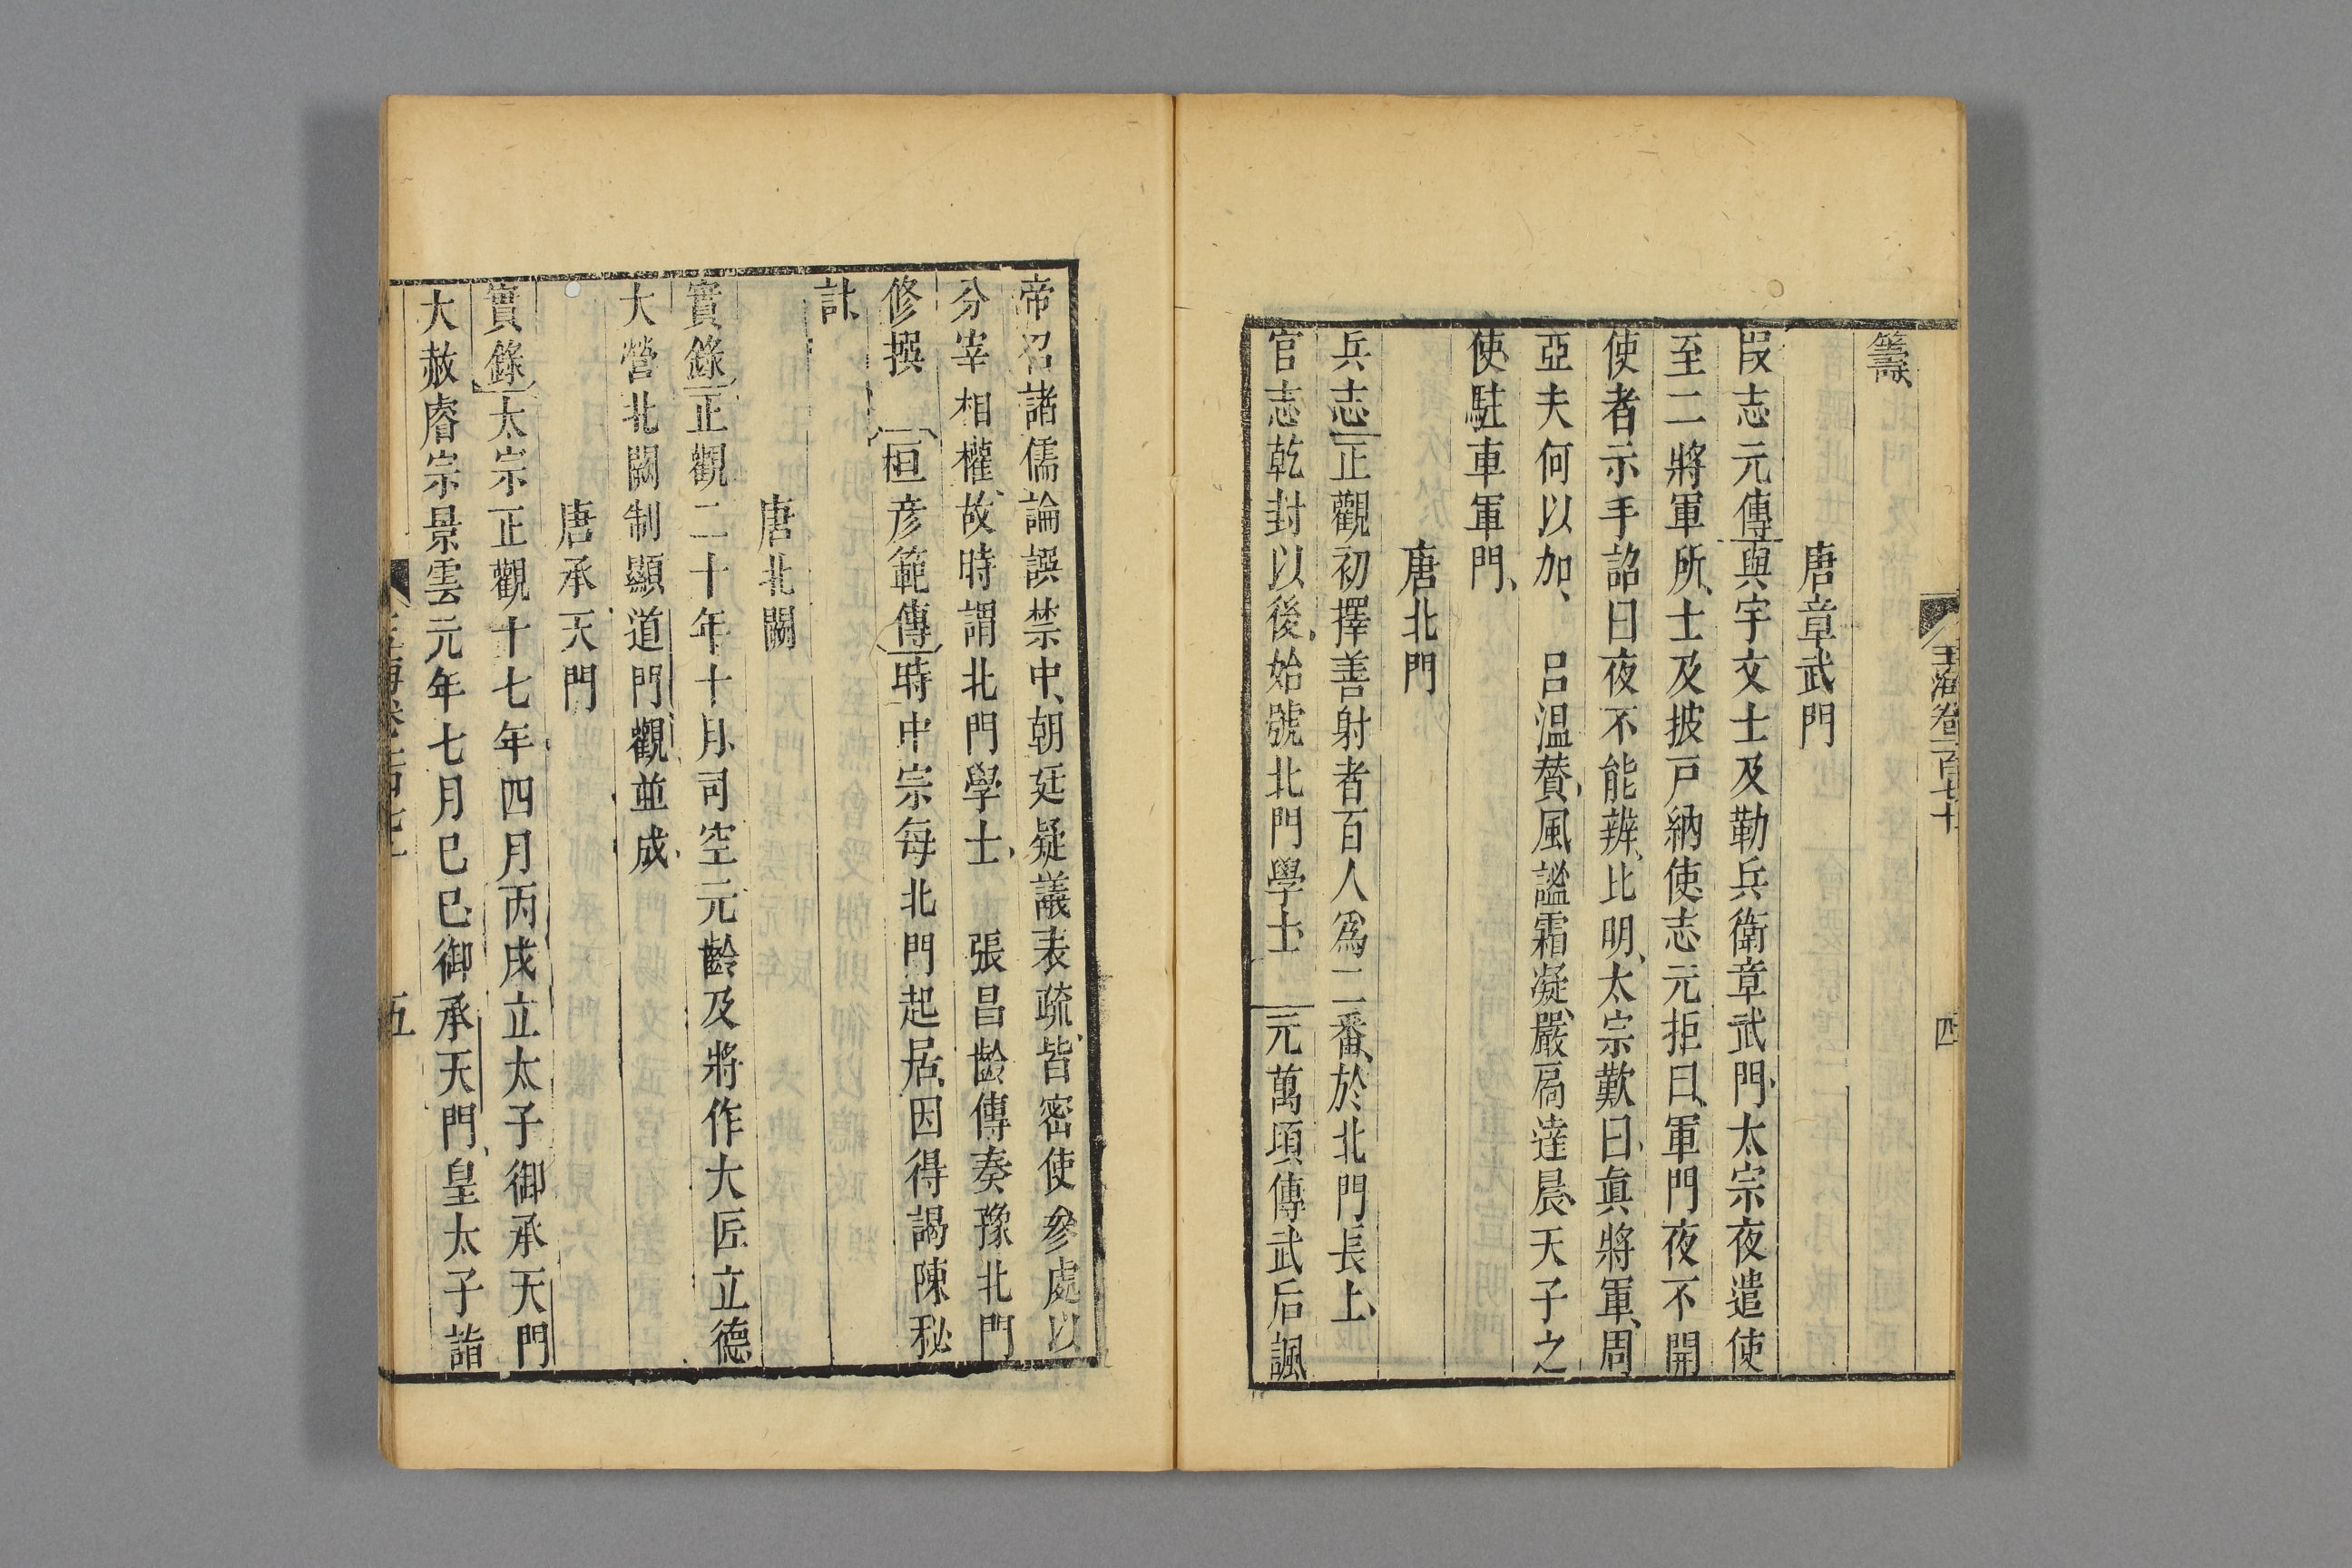 玉海卷一百七十
四
籌
唐章武門
段志元傳與宇文士及勒兵衛章武門太宗夜遣使
至二將軍所士及披戸納使志元拒曰軍門夜不開
使者示手詔曰夜不能辨比明太宗歎曰眞將軍周
亞夫何以加 呂溫贊風謐霜凝嚴扃達晨天子之
使駐車軍門
唐北門
兵志正觀初擇善射者百人爲二番於北門長上
官志乾封以後始號北門學士 元萬頃傳武后諷
帝召諸儒論譔禁中朝廷疑議表疏皆密使參處以
分宰相權故時謂北門學士 張昌齡傳奏豫北門
修撰 桓彦範傳時中宗每北門起居因得謁陳秘
計
唐北闕
實錄正觀二十年十月司空元齡及將作大匠立德
大營北闕制顯道門觀並成
唐承天門
實錄太宗正觀十七年四月丙戌立太子御承天門
大赦睿宗景雲元年七月巳巳御承天門皇太子詣
五